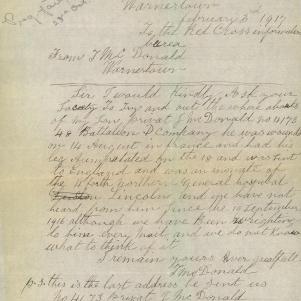 Warnertown
february 3th 1917
To, the Red Cross information
burea
From J Mc Donald
Warnertown
Sir I would kindly Ask your
Socity To Try and out the where abouts
of my Son, private J McDonald no 4173
48 Battalion D Company he was wounded
on 14 August in france and had his
leg Amputated on the 18 and was sent
to England and was an inmate of
the 4 forth northern General hospital
Lincoln and we have not
heard from him since the September
1916 although we have been righting
to him every mail, and we do not know
what to think of it
I remain yours
J McDonald
P.S. this is the last address he sent us
No 4173 Private J McDonald